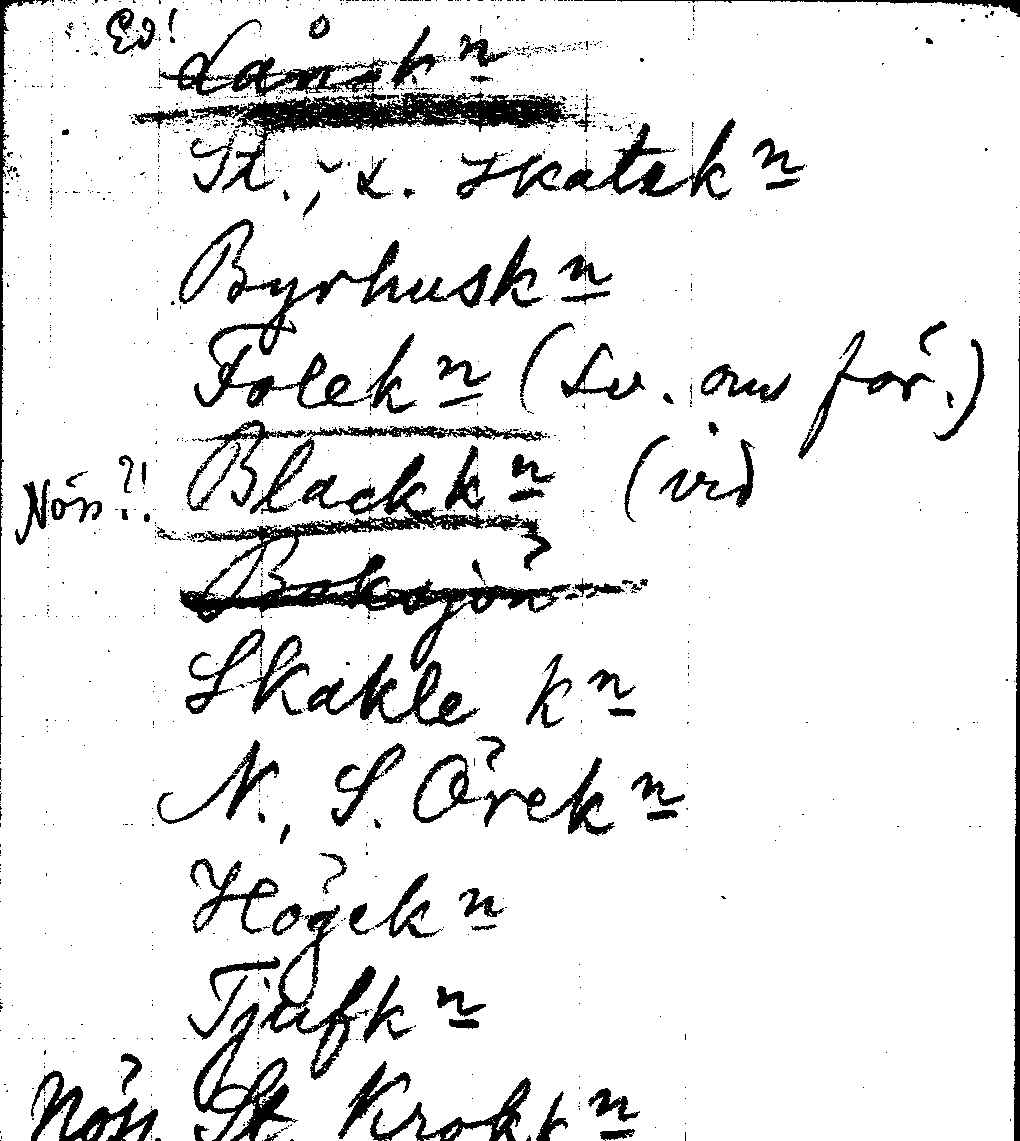 Ed! Långk n
St., L. Skatsk n
Byrhusk n
Folek n (Sv. om för.)
Nöss?! Blackk n (vid
Boksjön
Skakle k n
N., S. Örek n
Högek n
Tjufk n
Nöss. St. Krokk n